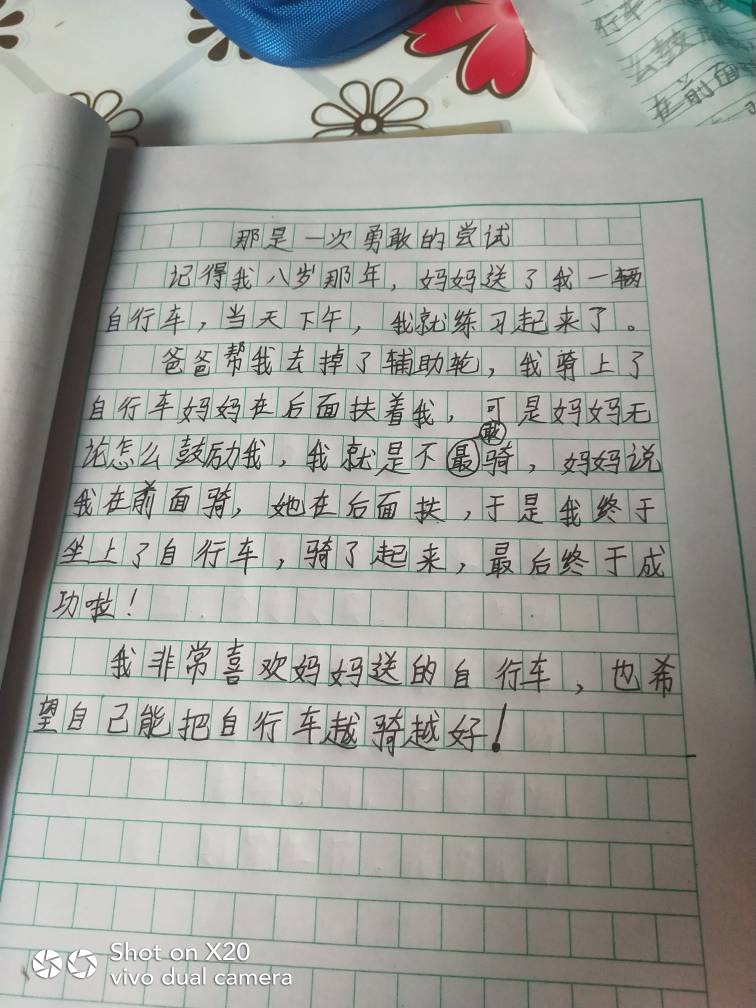 行车
么鼓
在前面
那是一次勇敢的尝试
记得我八岁那年，妈妈送了我一辆
自行车，当天下午，我就练习起来了。
爸爸帮我去掉了辅助轮，我骑上了
自行车妈妈在后面扶着我，可是妈妈无
论怎么鼓励我，我就是不敢骑，妈妈说
我在前面骑，她在后面扶，于是我终于
坐上了自行车，骑了起来，最后终于成
功啦！
我非常喜欢妈妈送的自行车，也希
望自己能把自行车越骑越好！
Shot on X20
vivo dual camera